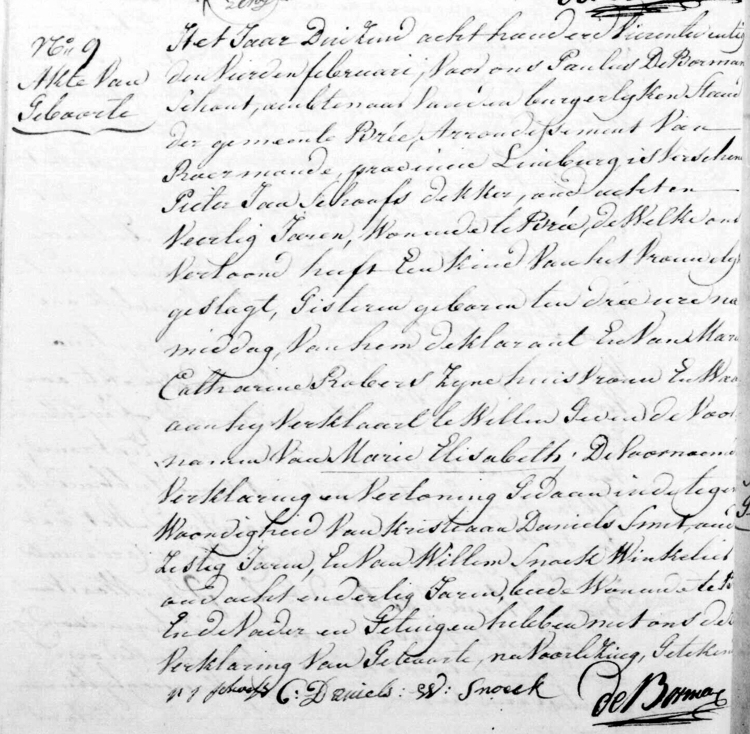 Nro 9
Akte Van
Geboorte
Het Jaar Duizend acht honderd Vierentwintig
den Vierden februari, Voor ons Paulus De Borman
Schout, ambtenaar Van den burgerlyken Stand
der gemeente Brée, Arrondissement Van
Roermonde, provincie Limburg is Verschenen
Pieter Jan Schoofs dekker, oud acht en
Veertig Jaren, Wonende te Brée, de Welke ons
Vertoond heeft Een kind Van het Vrouwelyk
geslagt, Gisteren geboren ten drée ure na
middag, Van hem deklarant En Van Maria
Catharine Robers Zyne huisvrouw En Waar
aan hy Verklaart te Willen Geven de Voor
namen Van Marie Elisabeth. De Voornoemde
Verklaring en Vertoning Gedaan in de tegen
Woordigheid Van Kristiaan Daniels Smit, oud
Zestig Jaren, En Van Willem Snoek Winkelier
oud acht en dertig Jaren, beide Wonende te
En de Vader en Getuigen hebben met ons de
Verklaring Van Geboorte, na Voorlezing, Getekend
p j schoofs C: Daniels: W: Snoeck
de Borman